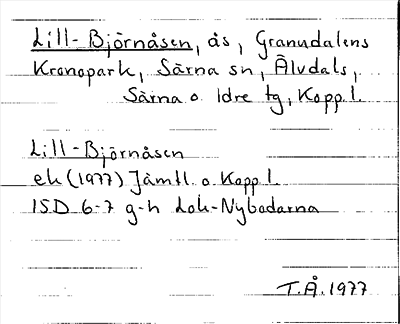 Lill-Björnåsen, ås, Granudalens
Kronopark, Särna sn, Älvdals,
Särna o. Idre tg, Kopp.l.
Lill-Björnåsen
ek (1977) Jämtl. o. Kopp l.
ISD 6-7 g-h Lok-Nybodarna
T.Å.1977